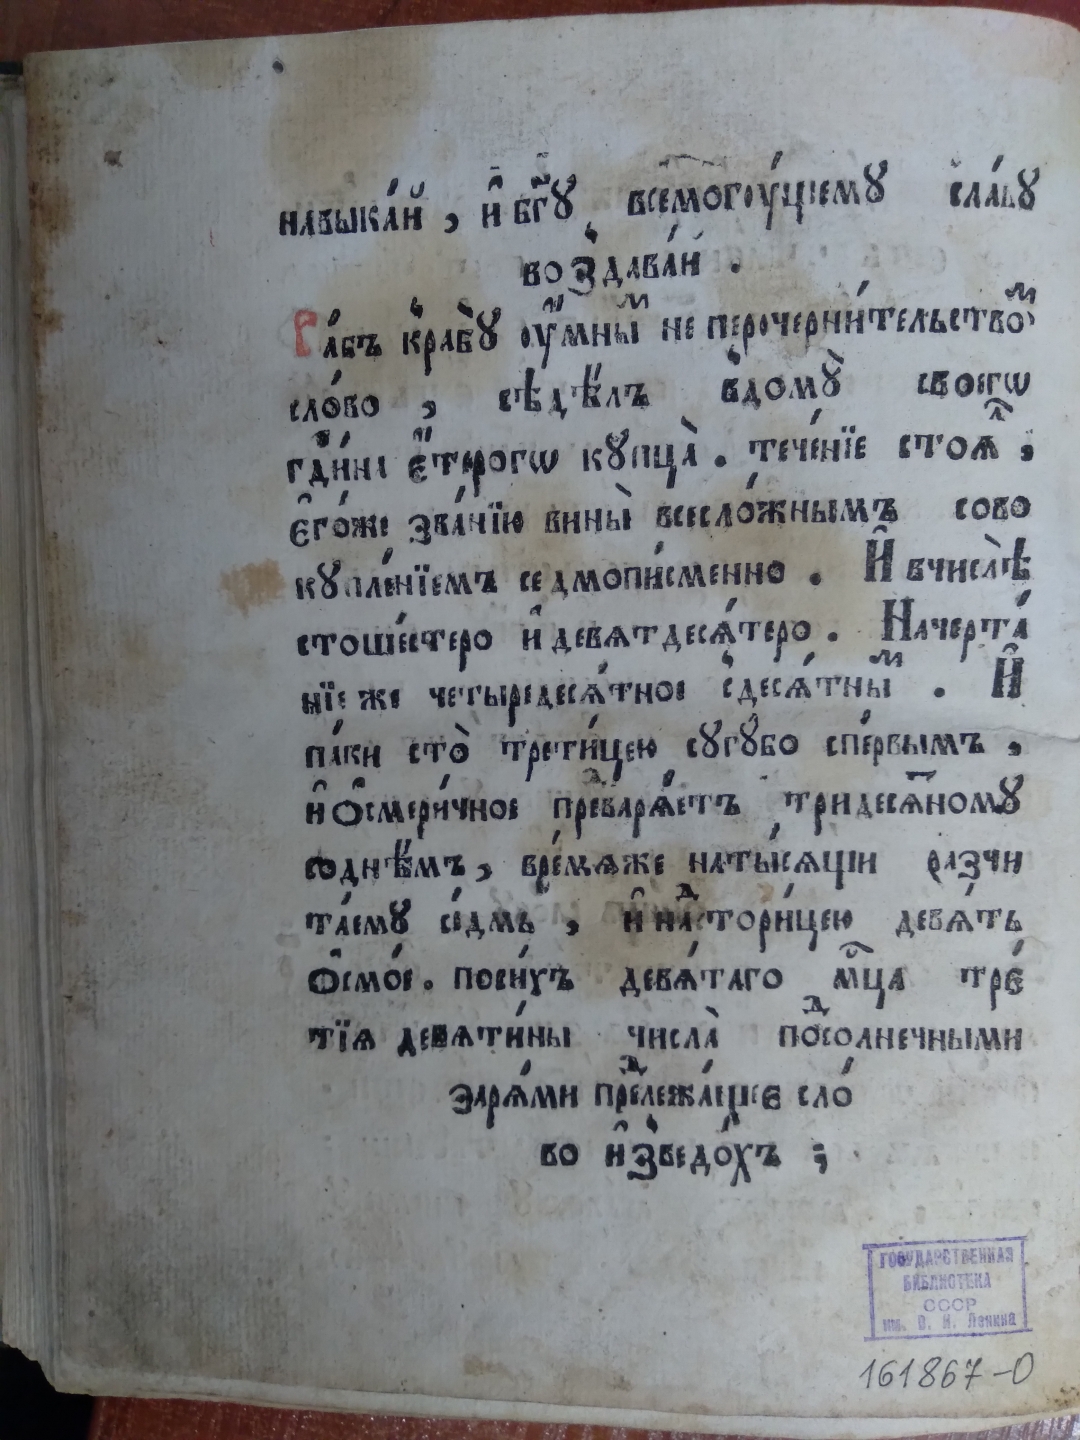 навыка́й , и҆ бг҃ꙋ всемогꙋ́щіемꙋ сла́вꙋ
воздава́й .
Ра́бъ к̾рабꙋ̀ оу҆́мныⷨ не перочерни́тельствоⷨ
сло́во , сѣдѣ́лъ в̾домꙋ̀ своегѡ
гдⷭ҇и́на є҆́терогѡ кꙋпца̀ . тече́нїе стоѧⷧ ,
є҆го́же зва́нїю вины̀ всесло́жнымъ сово
кꙋпле́нїемъ седмопи́сменно . И҆ вчислѣ̀
стоше́стеро и҆ девѧтдесѧ́теро . Начерта́
нїе же четыредесѧ́тное с̾десѧ́тныⷨ . И҆
па́ки сто̀ трети́цею сꙋгꙋ́бо спе́рвымъ ,
и҆ Ѻ҆смери́чное преⷣварѧ́етъ тридесѧⷮномꙋ
соднѣ́мъ , вре́мѧже наты́сѧщи разчи
та́емꙋ се́дмь , и҆ наⷣстори́цею девѧ́ть
Ѻ҆смо́е . посиⷯъ девѧ́таго мⷭ҇ца тре́
тїѧ девѧти́ны числа̀ поⷣсолнечными
зарѧ́ми преⷣлежа́щее сло́
во и҆зведо́хъ ;
ГОСУДАРСТВЕННАЯ
БИБЛИОТЕКА
СССР
им. В. И. Ленина
161867-0